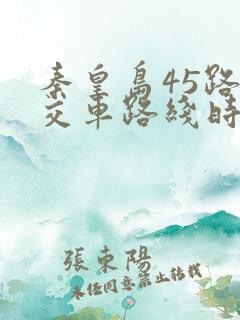 秦皇島45路
交車路綫時
張東陽
未經同意禁止轉載